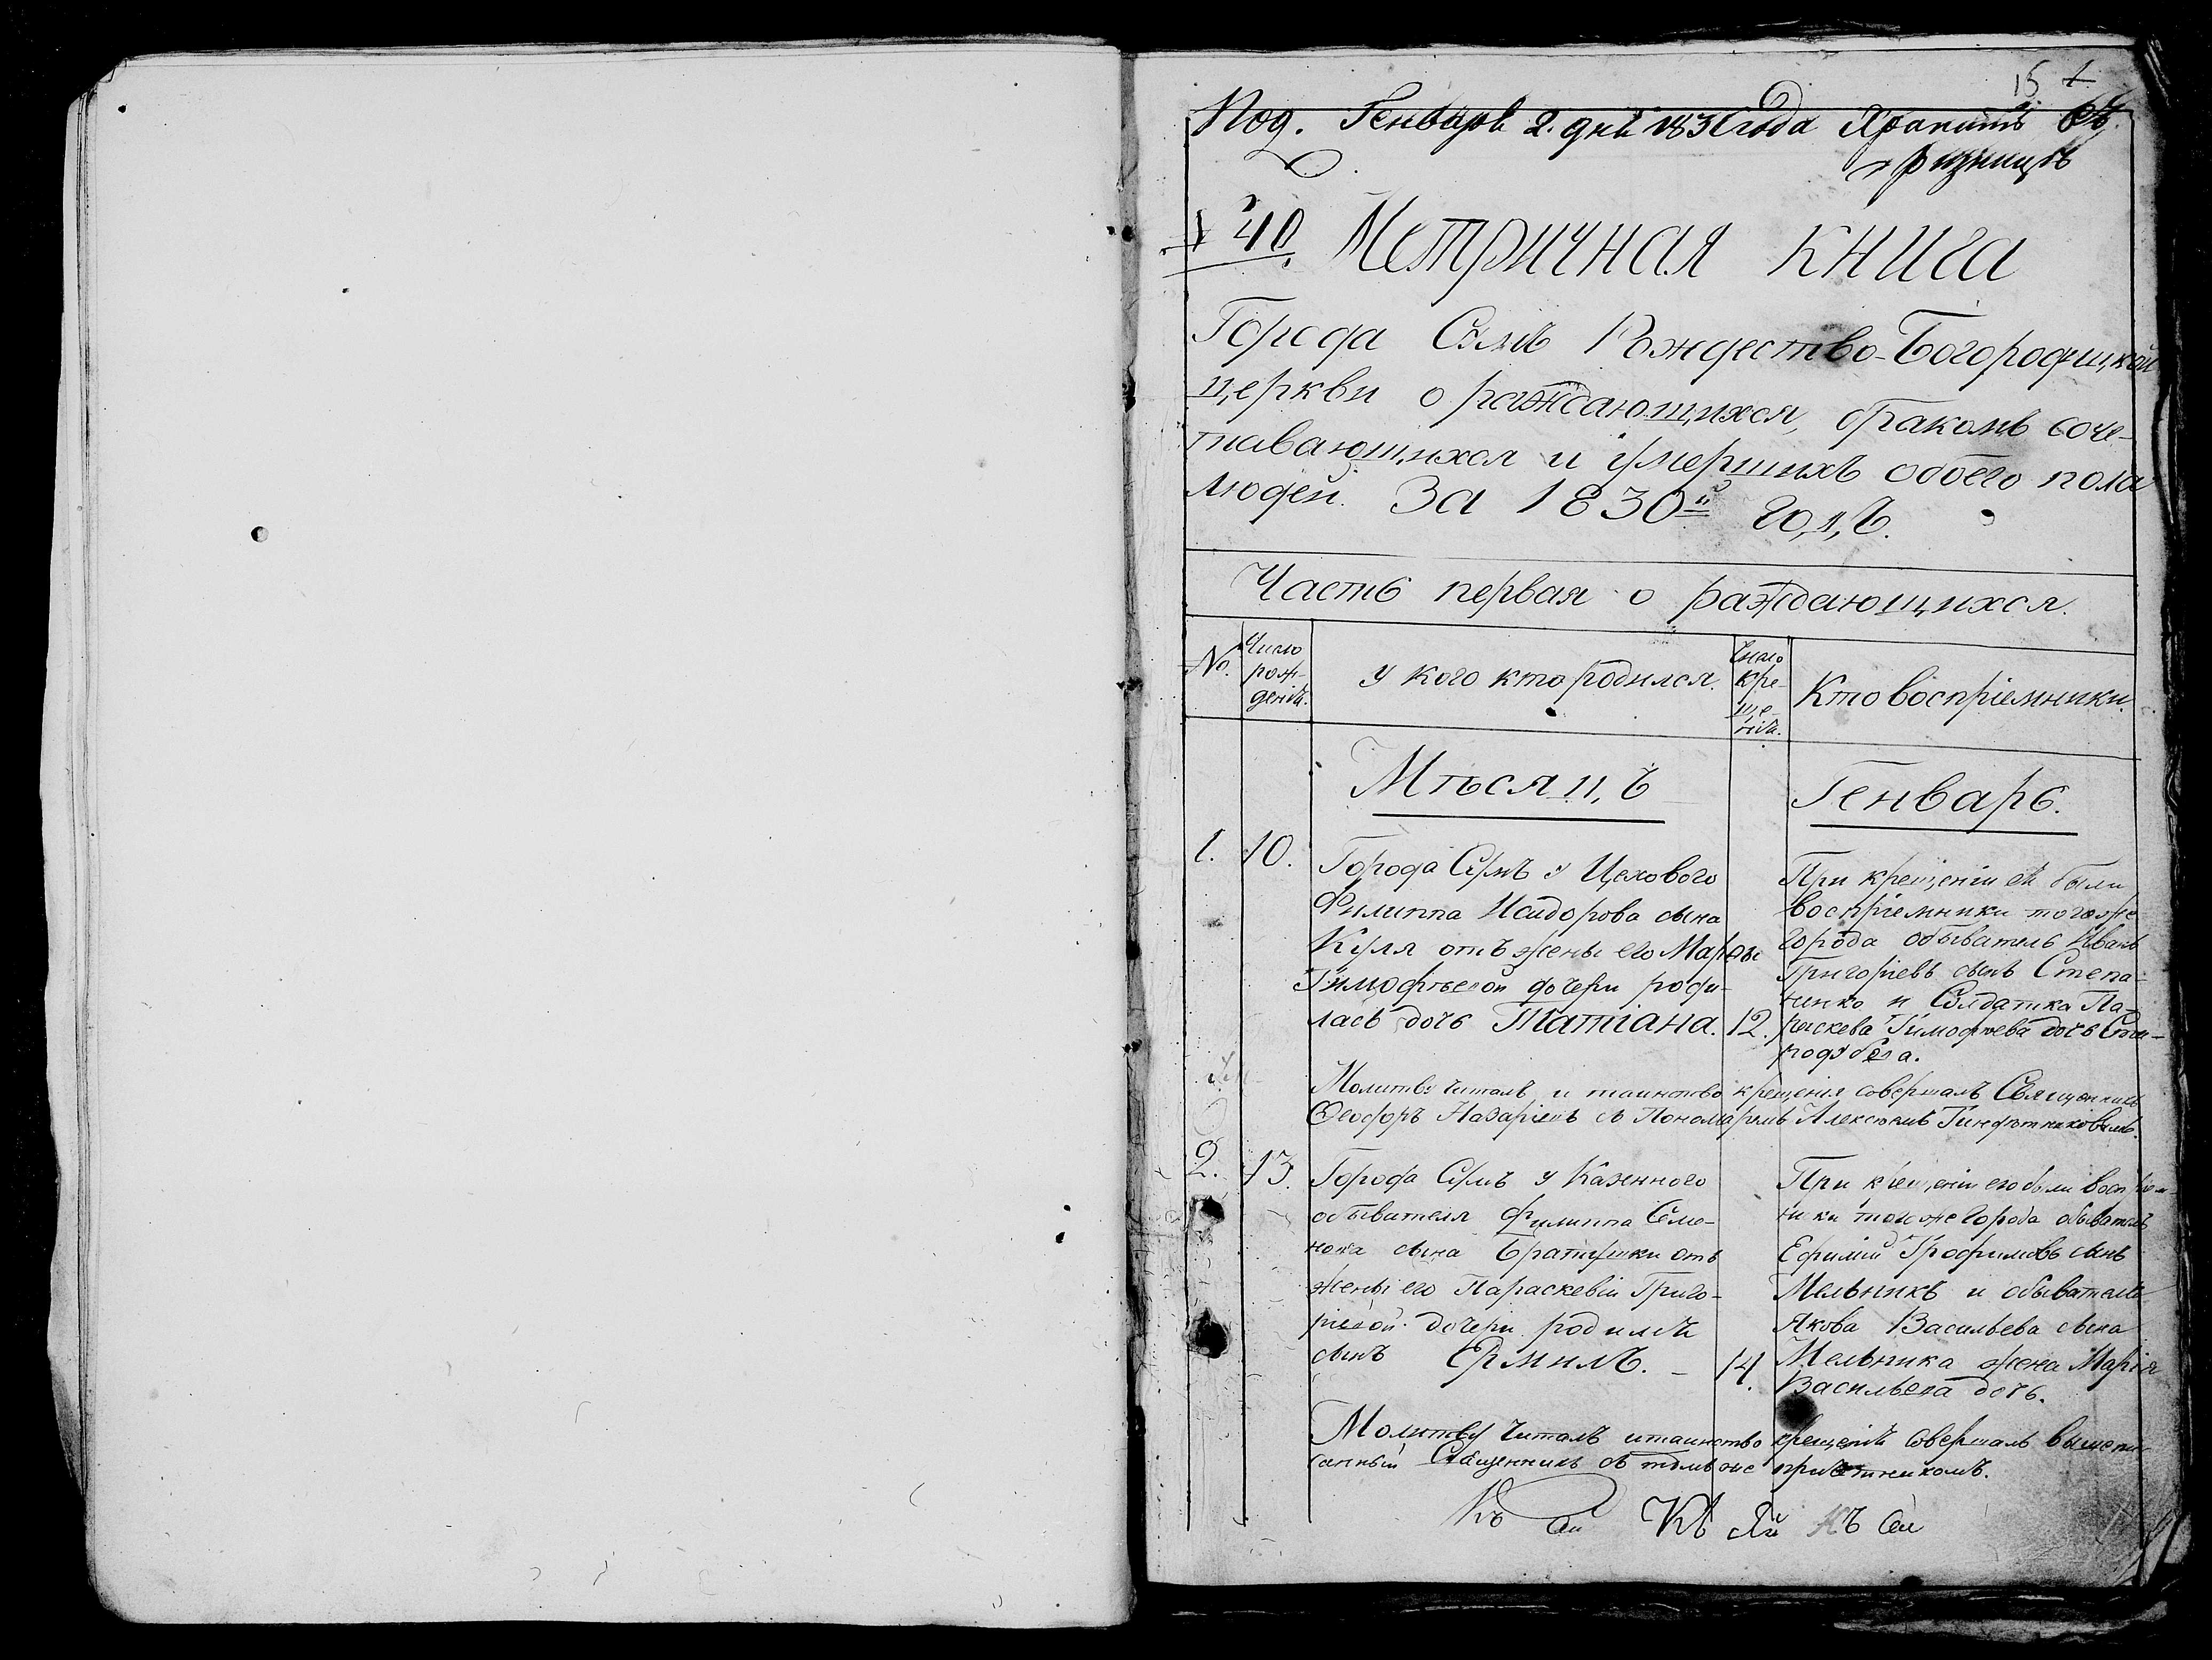 15 1
Под. Генваря 2. дня 1831 года Хранить въ
ризницѣ
№ 40. Метричная книга
Города Сумъ Рождество-Богородицкой
церкви о раждающихся, бракомъ соче-
тавающихся и умершихъ обоего пола
людей. За 1830й годъ.
Часть первая о раждающихся.
№. Число рож- денія. У кого кто родился. Число кре- ще- нія. Кто воспріемники.
Мѣсяцъ Генварь.
1. 10. Города Сумъ у Цеховаго
Филиппа Исидорова сына
Куля отъ жены его Марѳы
Тимофѣевой дочери роди-
лась дочь Татіана. 12.
При крещеніи ея были
воспріемники тогоже
города обыватель Иванъ
Григоріевъ сынъ Степа-
ненко и Солдатка Па-
раскева Тимофѣева дочь
Молитву читалъ и таинство крещенія совершалъ Священникъ
Ѳеодоръ Назаріевъ съ Пономаремъ Алексѣемъ
2. 13. Города Сумъ у Казеннаго
обывателя Филиппа Семе-
нова сына Братушки отъ
жены его Параскевіи Григо-
ріевой дочери родился
сынъ Ермилъ. - 14.
При крещеніи его были воспріем-
ники тогоже города обыватель
Ефимій Трофимовъ сынъ
Мельникъ и обывателя
Якова Васильева сына
Мельника жена Марія
Васильева дочь.
Молитву читалъ и таинство крещенія совершалъ вышепи-
санный Священникъ съ темъ же причетникомъ.